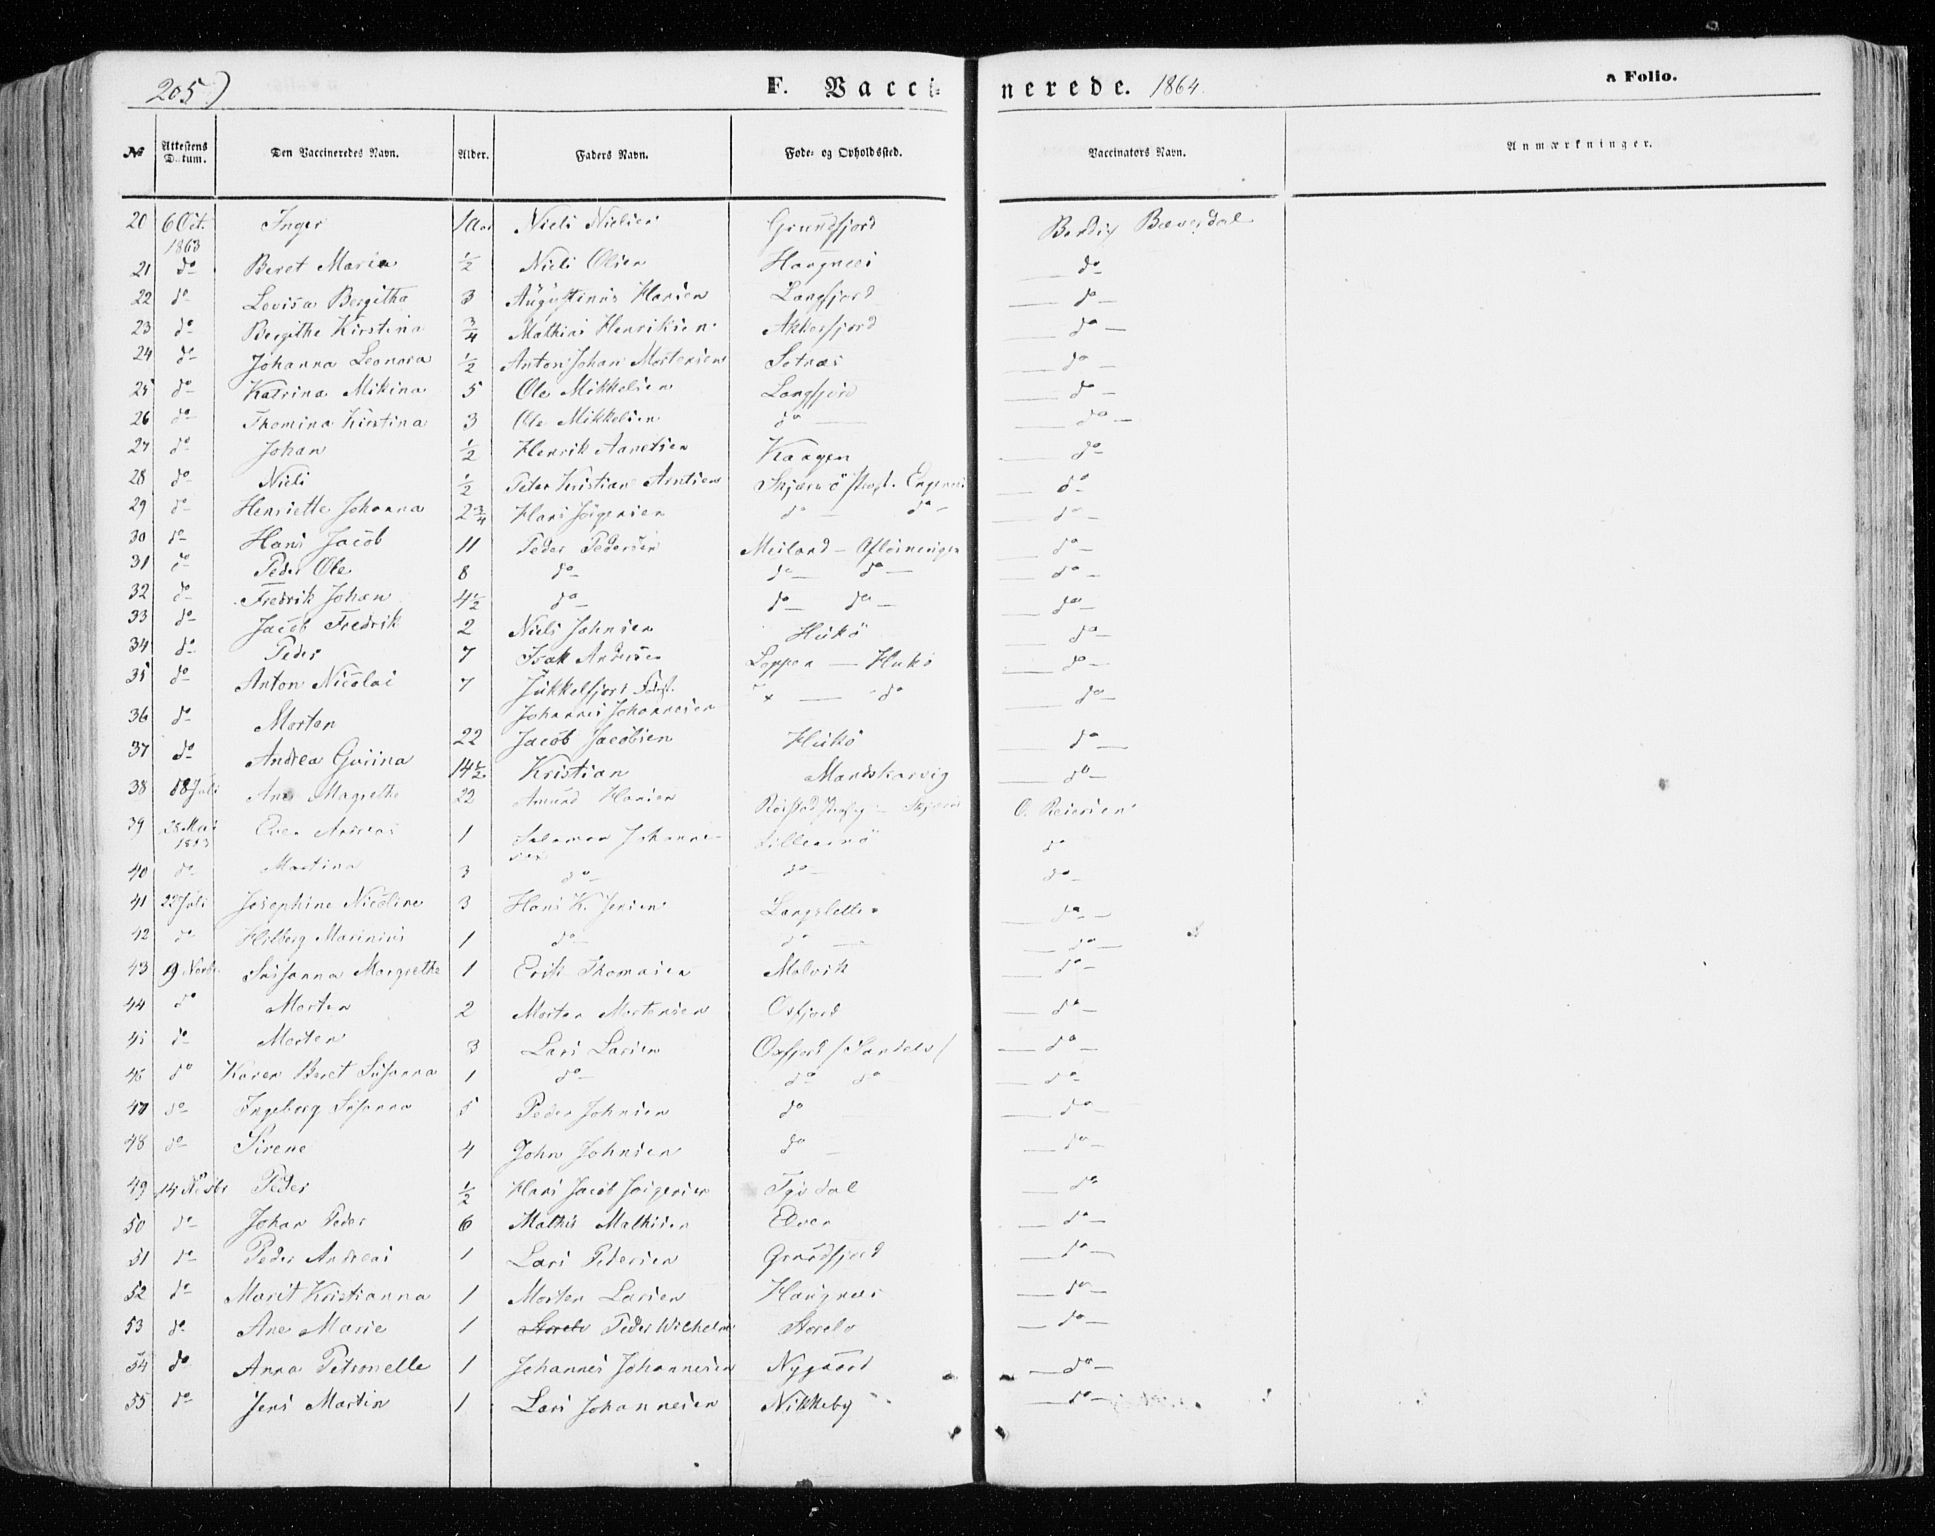 205)
F. Vaccinerede. 1864.
a Folio.
No Attestens Datum. Den Vaccineredes Navn. Alder. Faders Navn. Føde- og Opholdssted. Vaccinators Navn. Anmærkninger.
20 6 Oct. 1863 Inger 1 Aar Niels Nielsen Grundfjord Bendix Bæverdal
21 do Beret Maria ½ Niels Olsen Haugnæs do
22 do Lovisa Bergitha 3 Augustinus Hansen Langfjord do
23 do Bergithe Kirstina ¾ Mathias Henriksen Akkarfjord do
24 do Johanna Leonora ½ Anton Johan Mortensen Sotnæs do
25 do Katrina Mikina 5 Ole Mikkelsen Langfjord do
26 do Thomina Kirstina 3 Ole Mikkelsen do do
27 do Johan ½ Henrik Aanetsen Kaagen do
28 do Niels ½ Peter Kristian Arntsen Skjærvö do
29 do Henriette Johanna 2¾ Hans Jörgensen do do do
30 do Hans Jacob 11 Peder Pedersen Meiland - Aflösningen do
31 do Peder Ole 8 do do do do
32 do Fredrik Johan 4½ do do do do
33 do Jacob Fredrik 2 Niels Johnsen Hukö do
34 do Peder 7 Isak Andersen Loppen - Hukö do
35 do Anton Nicolai 7 Jükkelfjord Johannes Johannesen do do
36 do Morten 22 Jacob Jacobsen Hukö do
37 do Andrea Gurina 14½ Kristian Mandskarvig do
38 18 Juli Ane Magrethe 22 Amund Hansen O. Reiersen
39 28 Mai Andreas 1 Salamon Johannesen do
40 do Martina 3 do do do
41 22 Juli Josephine Nicoline 3 Hans K. Jensen Langslette do
42 do Hilberg Marinius 1 do do do
43 9 Novbr. Susanna Margrethe 1 Erik Thomasen Molvik do
44 do Morten 2 Morten Mortensen Oxfjord do
45 do Morten 3 Lars Larsen Oxfjord /Sandelv/ do
46 do Karen Beret Susanna 1 do do do do
47 do Ingeberg Susanna 5 Peder Johnsen do do
48 do Sirene 4 John Johnsen do do
49 14 Novbr Peder ½ Hans Jacob Jörgensen do
50 do Johan Peder 6 Mathis Mathisen Elven do
51 do Peder Andreas 1 Lars Pedersen Grundfjord do
52 do Marit Kristianna 1 Morten Larsen Haugnæs do
53 do Ane Marie 1 Storelv Peder Wilhelm Storelv do
54 do Anna Petronelle 1 Johannes Johannesen Nygaard do
55 do Jens Martin 1 Lars Johannesen Nikkeby do